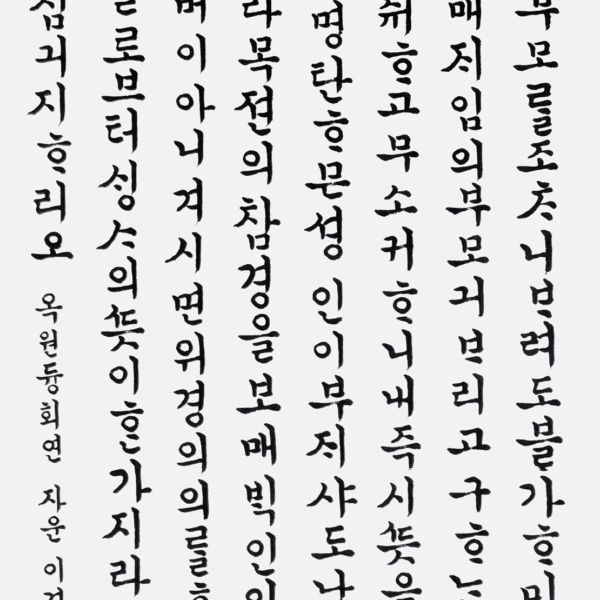 부모를조ᄎᆞ니ᄇᆞ려도블가ᄒᆞ미
매ᄌᆡ임의부모긔ᄇᆞ리고구ᄒᆞᄂᆞ
ᄒᆞ고무소귀ᄒᆞ니내즉시ᄯᅳᆺ을
명탄ᄒᆞ믄셩인이부ᄌᆡ샤도나
라목젼의참경을보매ᄇᆡᆨ인
이아니겨시면위경의의를ᄒᆞ
로브터ᄉᆡᆼᄉᆞ의ᄯᅳᆺ이ᄒᆞᆫ가지라
심긔지ᄒᆞ리오
옥원듕회연 자운 이